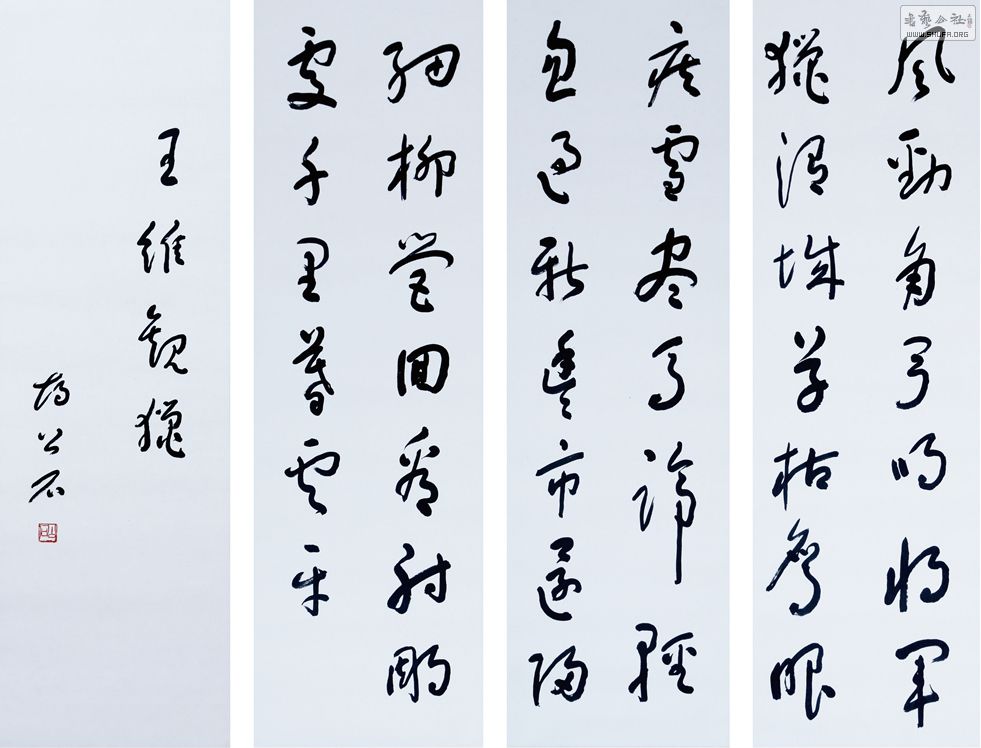 風勁角弓鳴將軍
獵渭城草枯鷹眼
疾雪盡馬蹄輕
忽過新豐市還歸
細柳營回看射鵰
處千里暮雲平
王維觀獵
公石
書藝公社
WWW.SHUFA.ORG